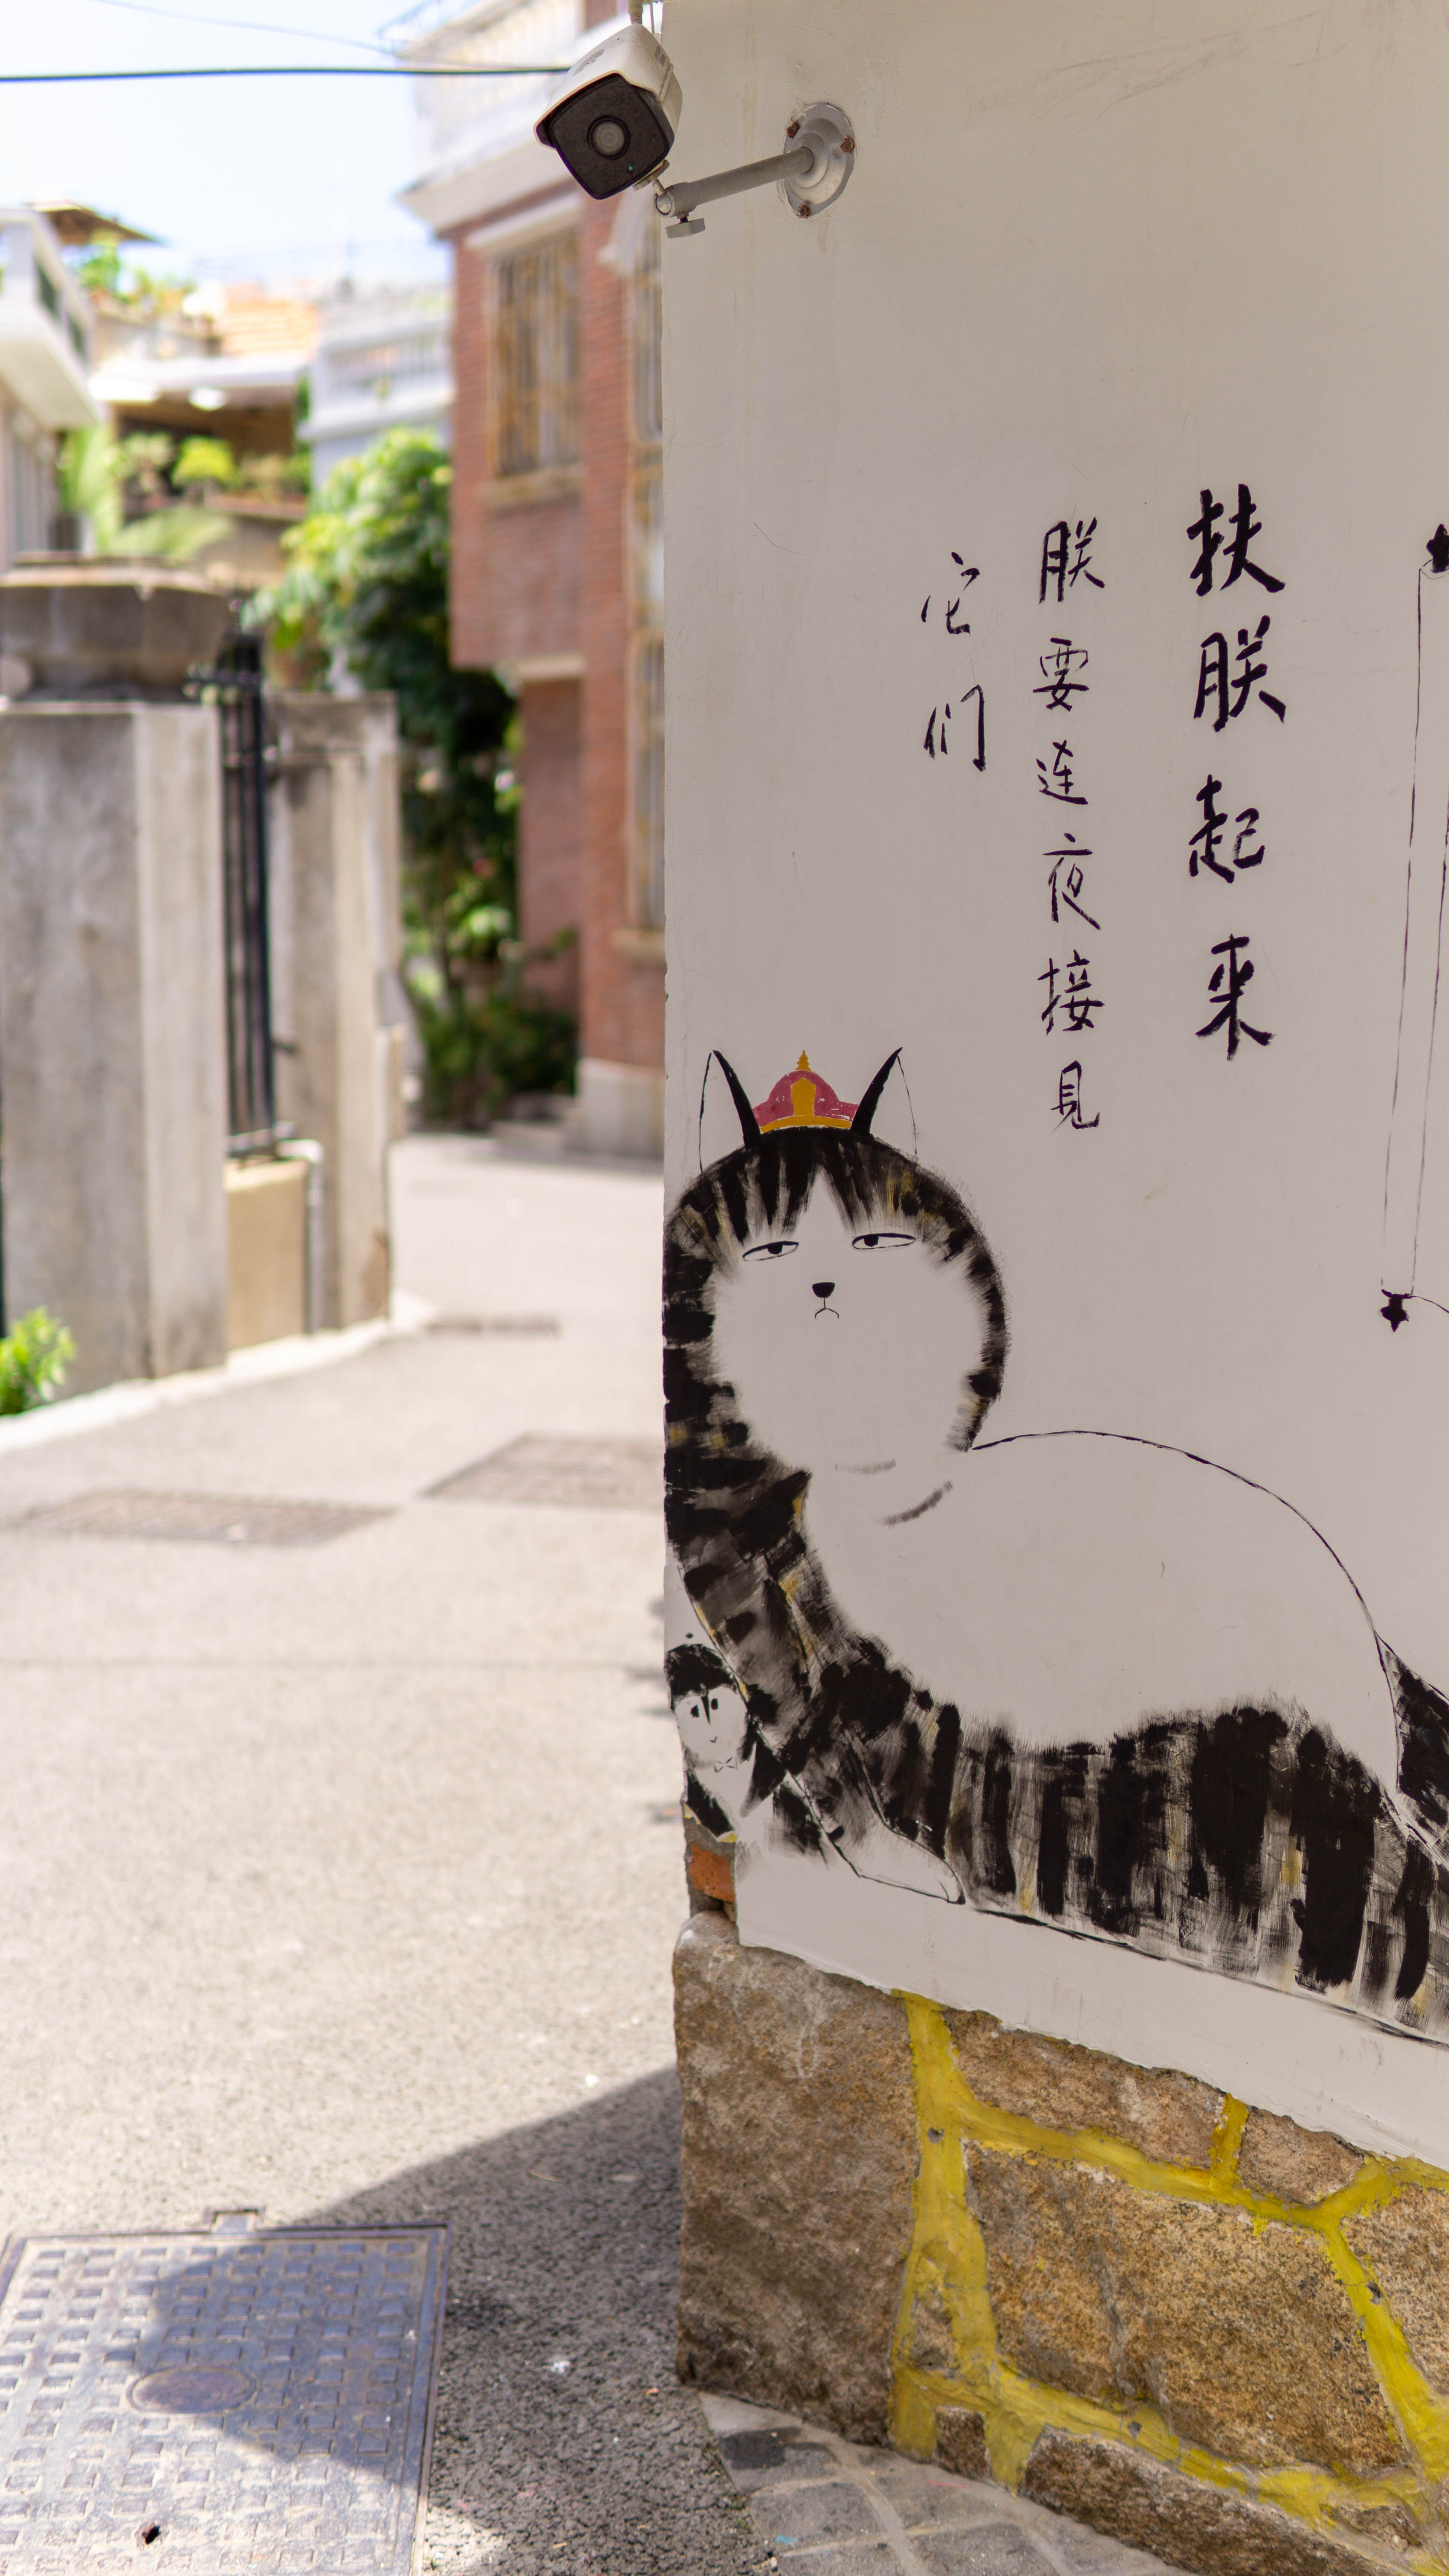 扶朕起来
朕要连夜接見
它们